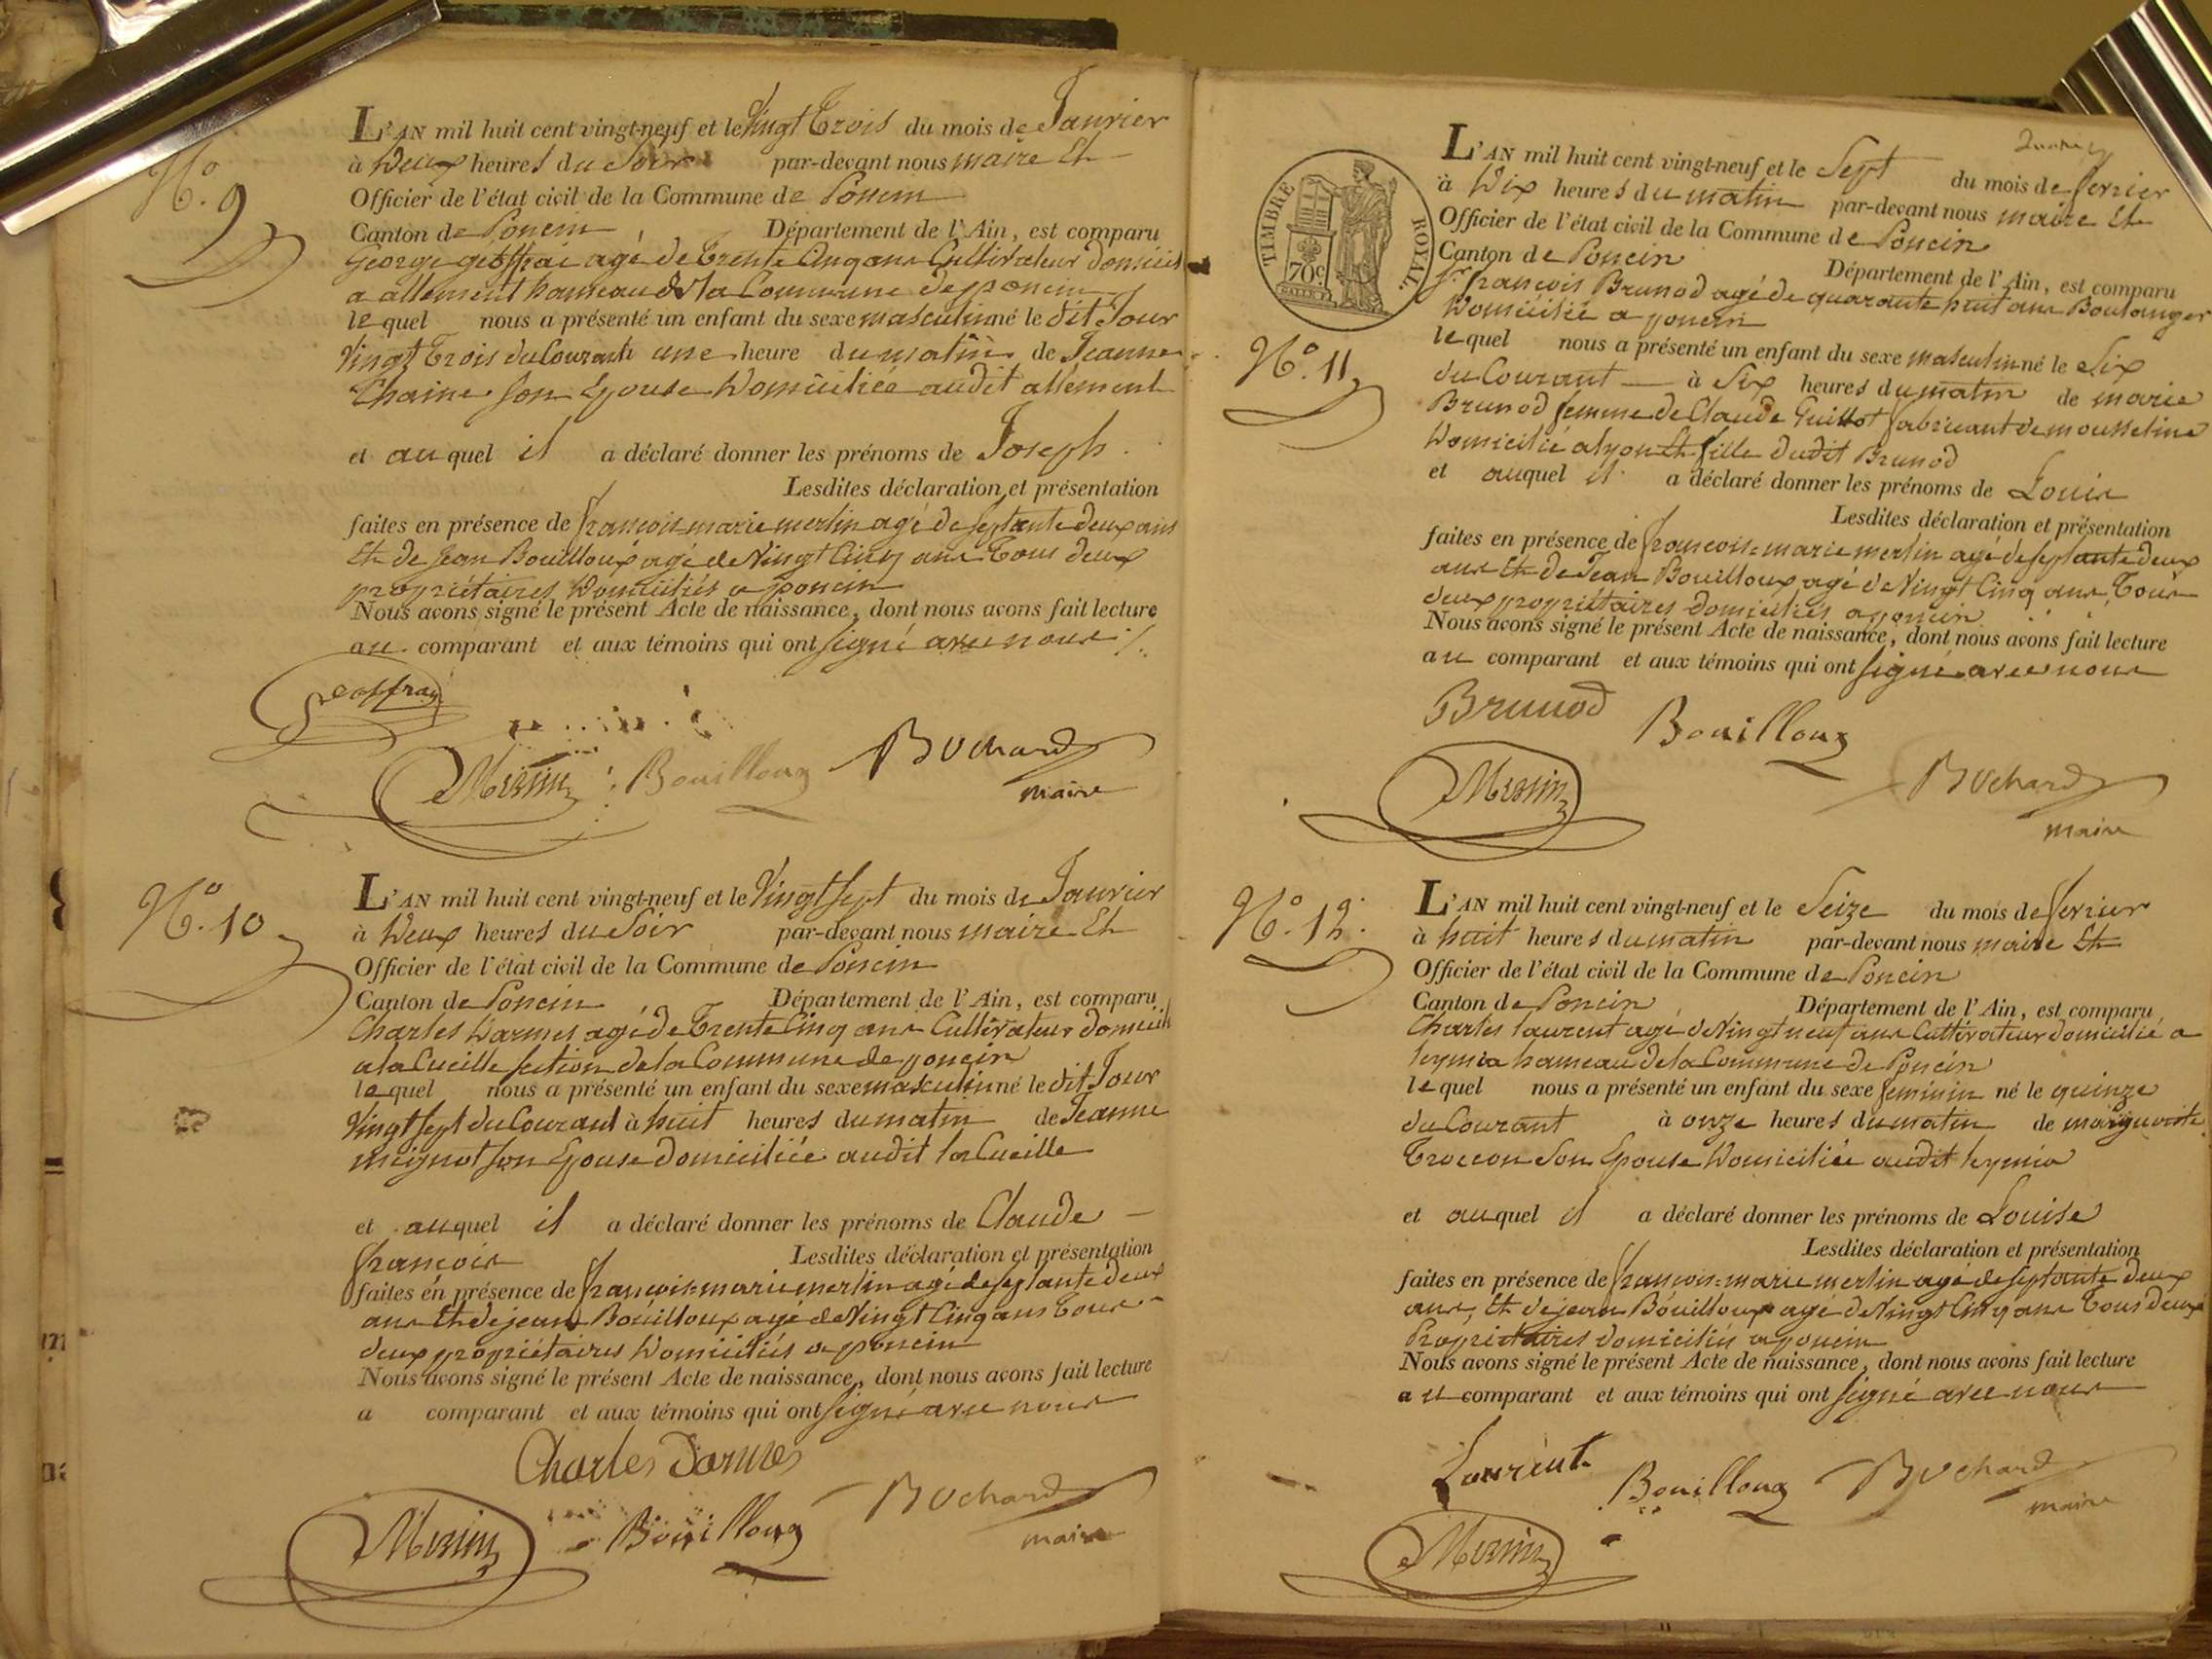 N.o 9
L'AN mil huit cent vingt-neuf et le Vingt Trois du mois de Janvier
à Deux heures du Soir par-devant nous maire Et
Officier de l'état civil de la Commune de Poncin
Canton de Poncin, Département de l'Ain, est comparu
George geoffrai agé de trente Cinq ans Cultivateur domicilié
a allement hameau de la Commune de poncin
lequel nous a présenté un enfant du sexe masculin né le dit Jour
Vingt Trois du Courant à une heure du matin de Jeanne
Chaine son Epouse Domiciliée audit allement
et auquel il a déclaré donner les prénoms de Joseph.
Lesdites déclaration et présentation
faites en présence de françois-marie merlin agé de septante deux ans
Et de Jean Bouilloux agé de Vingt Cinq ans Tous deux
propriétaires Domiciliés a poncin
Nous avons signé le présent Acte de naissance, dont nous avons fait lecture
au comparant et aux témoins qui ont signé avec nous ./.
geoffray
Merlin Bouilloux Bochard
maire
N.o 10
L'AN mil huit cent vingt-neuf et le Vingt sept du mois de Janvier
à Deux heures du Soir par-devant nous maire Et
Officier de l'état civil de la Commune de Poncin
Canton de Poncin, Département de l'Ain, est comparu
Charles Darmes agé de Trente Cinq ans Cultivateur domicilié
a la Cueille section de la Commune de poncin
lequel nous a présenté un enfant du sexe masculin né le dit Jour
Vingt sept du Courant à huit heures du matin de Jeanne
mignot son Epouse domiciliée audit la Cueille
et auquel il a déclaré donner les prénoms de Claude -
françois Lesdites déclaration et présentation
faites en présence de françois-marie merlin agé de septante deux
ans Et de jean Bouilloux agé de Vingt Cinq ans Tous
deux propriétaires Domiciliés a poncin
Nous avons signé le présent Acte de naissance, dont nous avons fait lecture
a comparant et aux témoins qui ont signé avec nous
Charles Darmes
Merlin Bouilloux Bochard
maire
TIMBRE ROYAL
70c
N.o 11
L'AN mil huit cent vingt-neuf et le Sept du mois de fevrier
à Dix heures du matin par-devant nous maire Et
Officier de l'état civil de la Commune de Poncin
Canton de Poncin Département de l'Ain, est comparu
Sr. françois Brunod agé de quarante huit ans Boulanger
Domicilié a poncin
lequel nous a présenté un enfant du sexe masculin né le Six
du Courant à Six heures du matin de marie
Brunod femme de Claude Guillot fabricant de mousseline
Domicilié a lyon Et fille dudit Brunod
et auquel il a déclaré donner les prénoms de Louis
Lesdites déclaration et présentation
faites en présence de françois-marie merlin agé de septante deux
ans Et de Jean Bouilloux agé de Vingt Cinq ans Tous
deux propriétaires domiciliés a poncin
Nous avons signé le présent Acte de naissance, dont nous avons fait lecture
au comparant et aux témoins qui ont signé avec nous
Brunod Bouilloux
Merlin Bochard
maire
N.o 12.
L'AN mil huit cent vingt-neuf et le Seize du mois de fevrier
à huit heures du matin par-devant nous maire Et
Officier de l'état civil de la Commune de Poncin
Canton de Poncin Département de l'Ain, est comparu
Charles laurent agé de Vingt neuf ans Cultivateur domicilié a
leymia hameau de la Commune de Poncin
lequel nous a présenté un enfant du sexe feminin né le quinze
du Courant à onze heures du matin de marguerite
Troccon Son Epouse Domiciliée audit leymia
et auquel il a déclaré donner les prénoms de Louise
Lesdites déclaration et présentation
faites en présence de françois-marie merlin agé de septante deux
ans, Et de jean Bouilloux agé de Vingt Cinq ans Tous deux
Propriétaires domiciliés a poncin
Nous avons signé le présent Acte de naissance, dont nous avons fait lecture
au comparant et aux témoins qui ont signé avec nous
Laurent Bouilloux Bochard
maire
Merlin